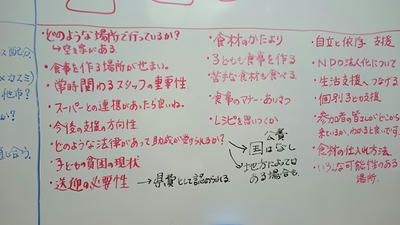 ス配分
(メカス)
他市?
か?
し合う。
・どのような場所で行っているか?
↳空き家がある
・食事を作る場所が せまい。
・常時関わるスタッフの重要性
・スーパーとの連携があったら良いね。
・今後の支援の方向性
・どのような法律があって助成が受けられるか?
・子どもの貧困の現状
・送迎の必要性 → 県費として認められる。
公費
→国はなし
→地方によっては
ある場合も。
・食材のかたより
・子どもも食事を作る
・苦手な食材も食べる
・食事のマナー・あいさつ
・レシピを思いつくか
・自立と依存 支援
・NPO法人化について
・生活支援へつなげる
・個別子ども支援
・参加者の皆さんがどこから
来ているか、わかると良いです。
・食材の仕入れ方法
・いろんな可能性のある
場所。